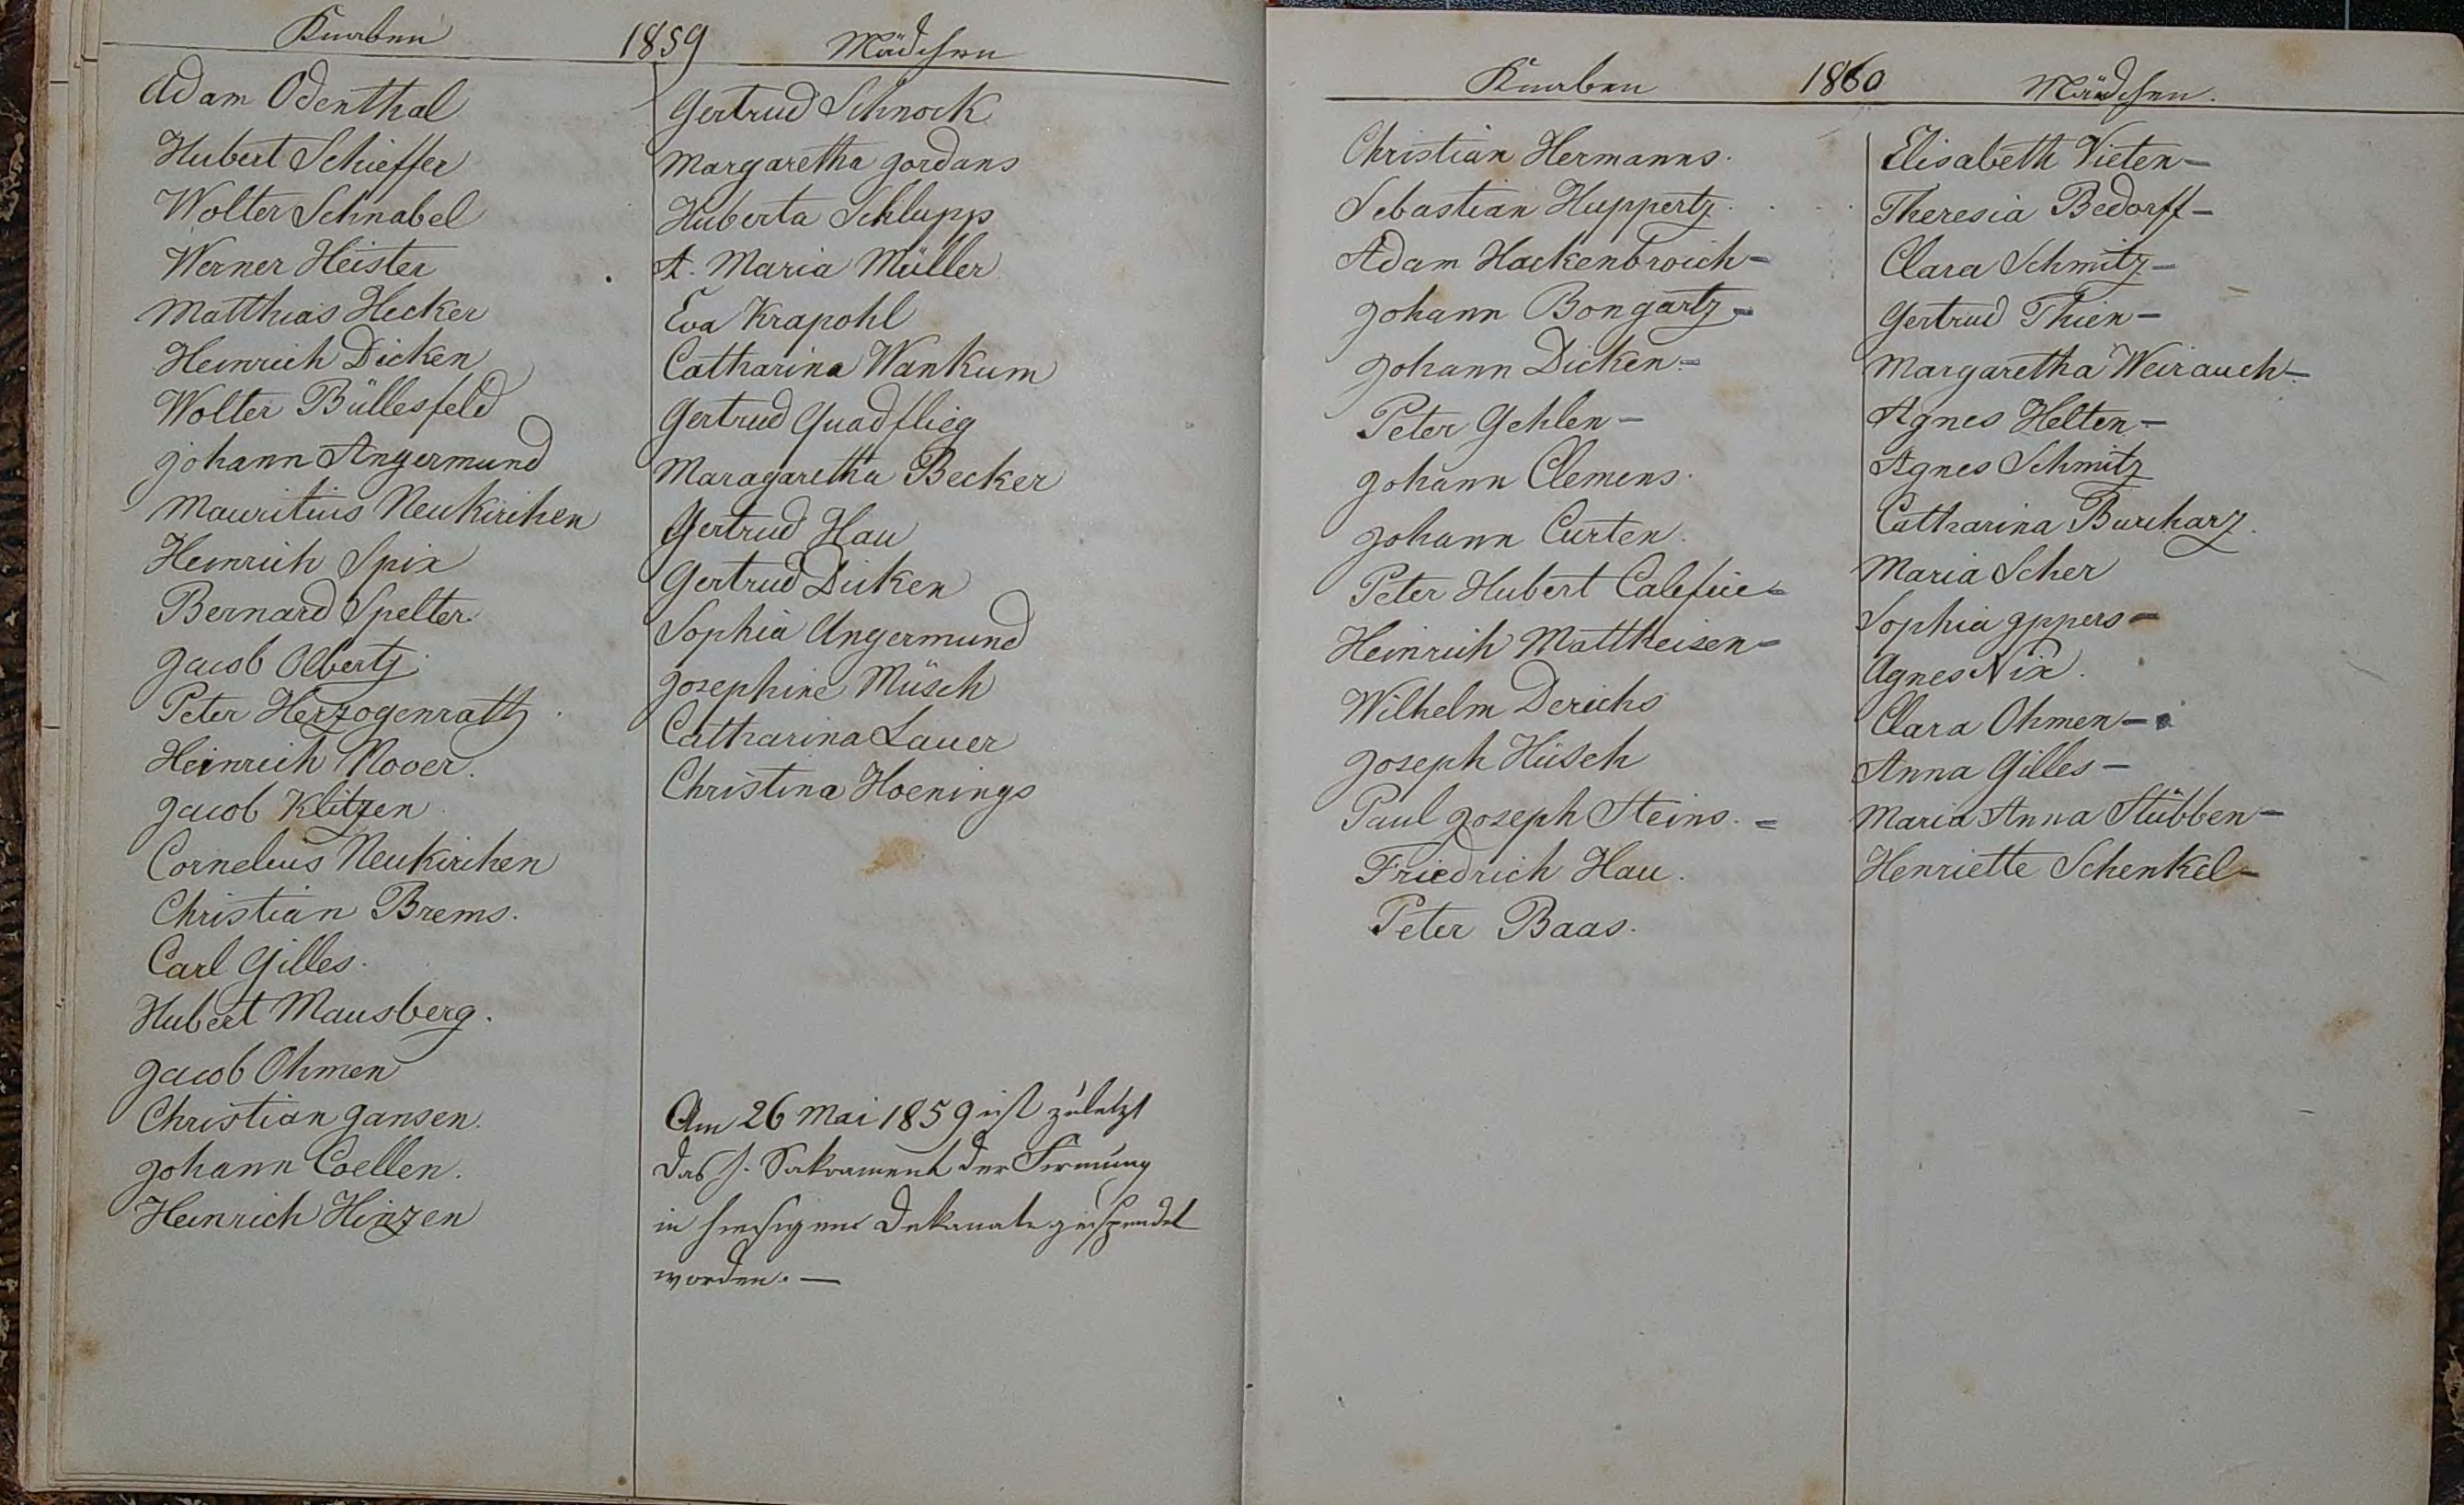 Knaben 1859 Mädchen
Adam Odenthal
Hubert Schieffer
Wolter Schnabel
Werner Heister
Matthias Hecker
Heinrich Dicken
Wolter Büllesfeld
Johann Angermund
Mauritius Neukirchen
Heinrich Spix
Bernard Spelter
Jacob Olbertz
Peter Herzogenrath
Heinrich Nover.
Jacob Klitzen
Cornelius Neukirchen
Christian Brems.
Carl Gilles.
Hubert Mausberg.
Jacob Ohmen
Christian Jansen.
Johann Coellen.
Heinrich Hinzen
Gertrud Schnock
Margaretha Jordans
Huberta Schlupp
A. Maria Müller
Eva Krapohl
Catharina Wankum
Gertrud Quadflieg
Maragaretha Becker
Gertrud Hau
Gertrud Dicken
Sophia Angermund
Josephine Müsch
Catharina Lauer
Christina Hoenings
Am 26 Mai 1859 ist zuletzt
das h. Sakrament der Firmung
in hiesigem Dekanate gespendet
worden. —
Knaben 1860 Mädchen.
Christian Hermanns.
Sebastian Huppertz.
Adam Hackenbroich -
Johann Bongartz -
Johann Dicken -
Peter Gehlen -
Johann Clemens.
Johann Curten.
Peter Hubert
Heinrich Mattheisen -
Wilhelm Derichs
Joseph Hüsch
Paul Joseph Steins. =
Friedrich Hau.
Peter Baas.
Elisabeth Vieten -
Theresia Bedorff -
Clara Schmitz -
Gertrud Thien -
Margaretha Weirauch -
Agnes Helten -
Agnes Schmitz
Catharina Burcharz.
Maria Scher
Sophia Ippers -
Agnes Nix.
Clara Ohmen -
Anna Gilles -
Maria Anna Stübben -
Henriette Schenkel -